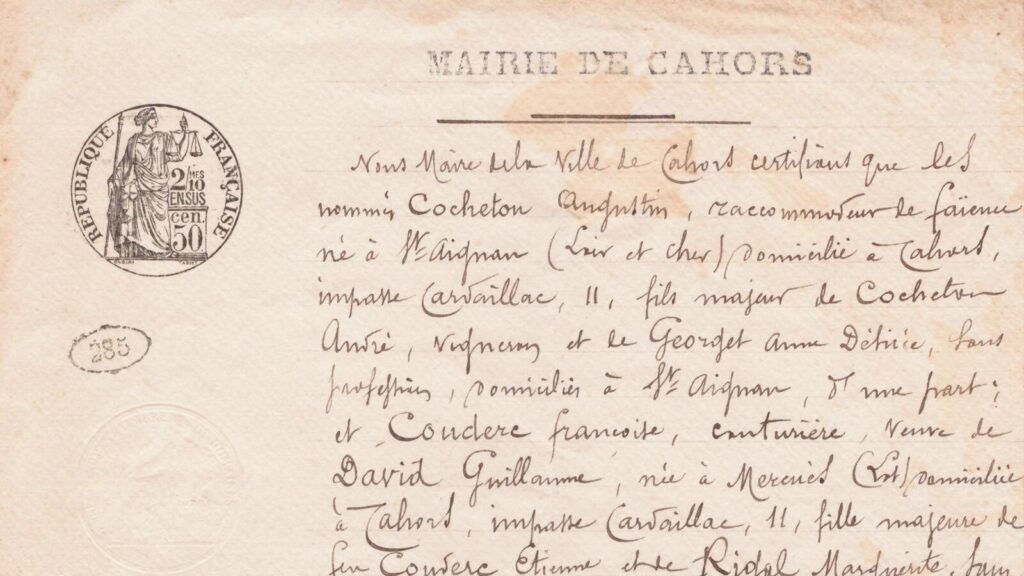 MAIRIE DE CAHORS
RÉPUBLIQUE FRANÇAISE
2/10 MES
EN SUS
cen.
50
285
Nous Maire de la Ville de Cahors certifions que les
nommés Cocheton Augustin, raccommodeur de faïence
né à St Aignan (Loir et cher) domicilié à Cahors,
impasse Cardaillac, 11, fils majeur de Cocheton
André, vigneron et de Georget Anne Désirée, sans
profession, domiciliés à St Aignan, d'une part;
et Couderc françoise, couturière, veuve de
David Guillaume, née à Mercuès (Lot) domiciliée
à Cahors, impasse Cardaillac, 11, fille majeure de
feu Couderc Etienne et de Ridal Marguerite, sans